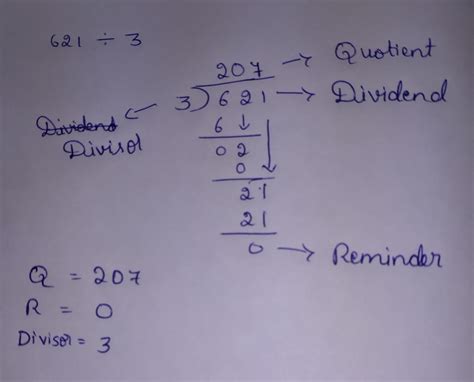 621 ÷ 3
207 → Quotient
3)621 → Dividend
Dividend
Divisor
6 ↓
02
0
21
21
0 → Reminder
Q = 207
R = 0
Divisor = 3